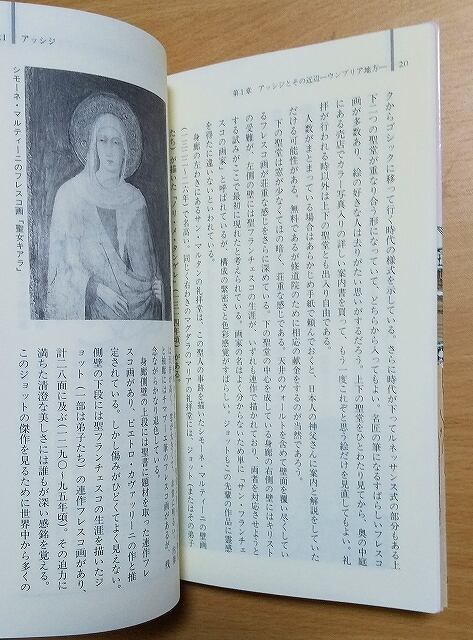 第1章 アッシジとその近辺―ウンブリア地方―
20
クからゴシックに移って行く時代の様式を示している。さらに時代が下ってルネッサンス式の部分もある上
下二つの聖堂が重なり合う形になっていて、どちらから入ってもよい。名匠の筆になるすばらしいフレスコ
画が多数あり、絵の好きな人は去りがたい思いがするだろう。上下の聖堂をひとわたり見てから、奥の中庭
にある売店でカラー写真入りの詳しい案内書を買って、もう一度これぞと思う絵だけを見直してもよい。礼
拝が行われる時以外は上下の聖堂とも出入り自由である。
人数がまとまっている場合はあらかじめ手紙で頼んでおくと、日本人の神父さんに案内と解説をしていた
だける可能性がある。無料であるが修道院のために相応の献金をするのが当然であろう。
下の聖堂は窓が少なくてほの暗く、荘重な感じである。天井のヴォールトを含めて壁面を覆い尽くしてい
るフレスコ画が荘重な感じをさらに深めている。下の聖堂の中心を成している身廊の右側の壁にはキリスト
の受難が、左側の壁には聖フランチェスコの生涯が、いずれも連作で描かれており、両者を対応させようと
する試みがここで最初に現れたと考えられている。画家の名はよく分からないために「サン・フランチェ
スコの画家」と呼ばれているが、構成の緊密さと色彩感覚がすばらしい。ジョットもこの先輩の作品に霊感
を得たに違いないとされている。
身廊の左わきにあるサン・マルチーノの礼拝堂は、この聖人の事跡を描いたシモーネ・マルティーニの壁画
で名高い。同じく右わきのマグダラのマリアの礼拝堂には、ジョット(またはその弟子
たち)が描いた「ノリ・メ・タンゲレ
がある。
21 アッシジ
シモーネ・マルティーニのフレスコ画「聖女キアラ」
身廊側壁の上段には聖書に題材を取った連作フレ
スコ画があり、ピエトロ・カヴァッリーニの作と推
定されている。しかし傷みがひどくてよく見えない。
側壁の下段には聖フランチェスコの生涯を描いたジ
ョット(一部は弟子たち)の連作フレスコ画があり、
計二八面に及ぶ(一二九〇~九五年頃)。その迫力に
満ちた清澄な美しさには誰もが深い感銘を覚える。
このジョットの傑作を見るために世界中から多くの